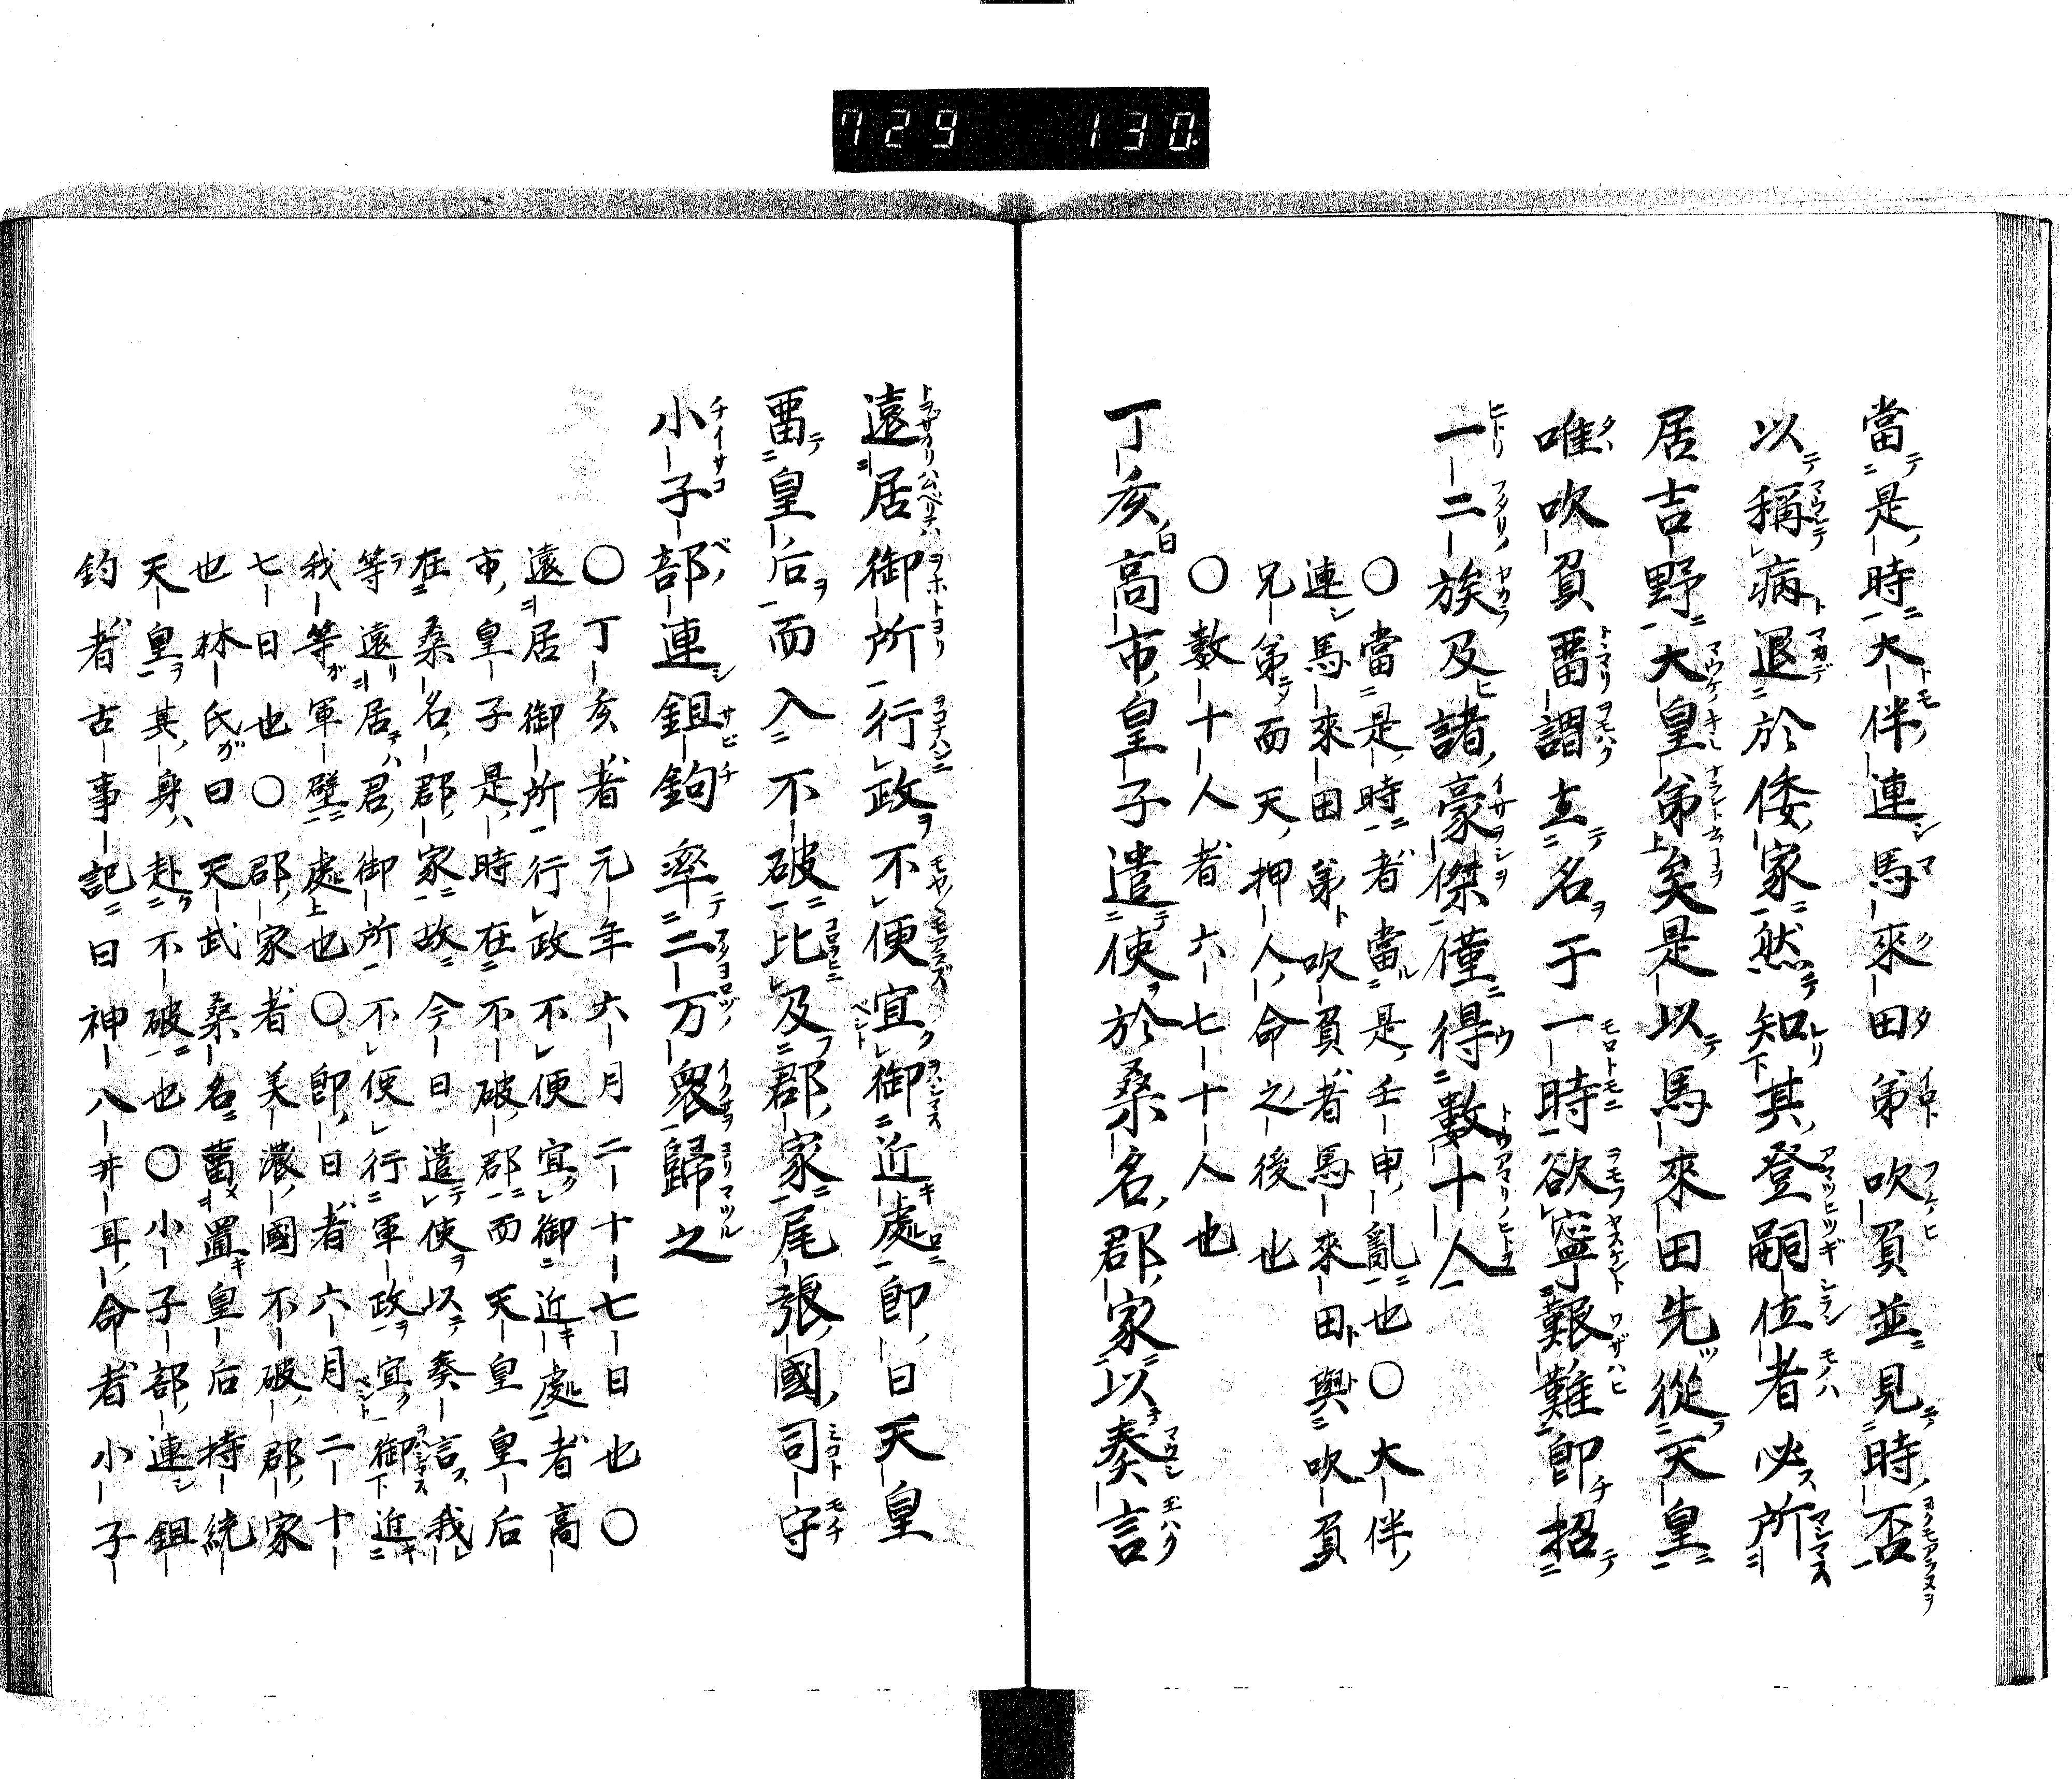 729 130
當是時大伴連馬來田弟吹負並見時否
以稱病退於倭家然知其登嗣位者必所
居吉野大皇弟矣是以馬來田先從天皇
唯吹負畱謂立名于一時欲寧艱難即招
一二族及諸豪傑僅得數十人
〇當是時者當是壬申亂也〇大伴
連馬來田弟吹負者馬來田與吹負
兄弟而天押人命之後也
〇數十人者六七十人也
丁亥高市皇子遣使於桑名郡家以奏言
遠居御所行政不便宜御近處即日天皇
畱皇后而入不破比及郡家尾張國司守
小子部連鉏鉤率二万衆歸之
〇丁亥者元年六月二十七日也〇
遠居御所行政不便宜御近處者高
市皇子是時在不破郡而天皇皇后
在桑名郡家故今日遣使以奏言我
等遠居君御所不便行軍政宜御近
我等軍壁處也〇即日者六月二十
七日也〇郡家者美濃國不破郡家
也林氏曰天武桑名畱置皇后持統
天皇其身赴不破也〇小子部連鉏
釣者古事記曰神八井耳命者小子